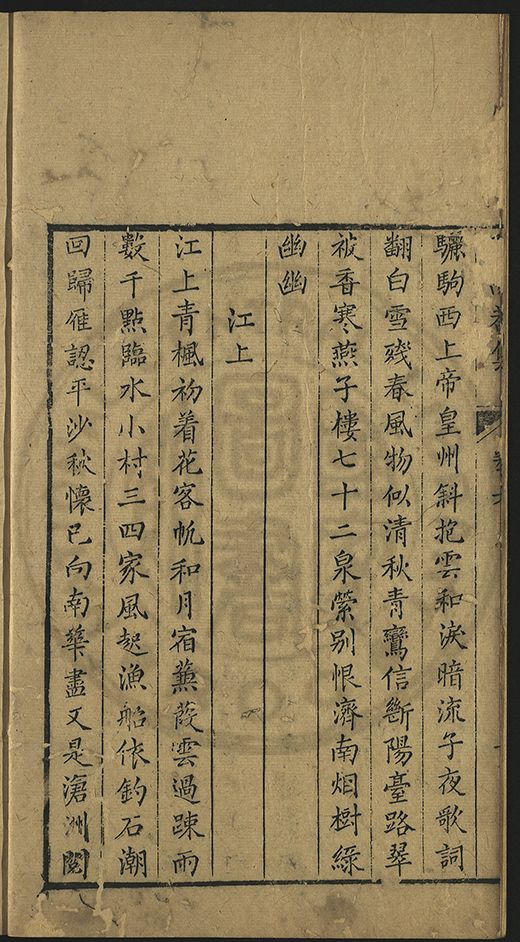 驪駒西上帝皇州斜抱雲和淚暗流子夜歌詞
翻白雪殘春風物似清秋青鸞信斷陽臺路翠
被香寒燕子樓七十二泉縈别恨濟南烟樹綠
幽幽
江上
江上青楓初着花客帆和月宿蒹葭雲過踈雨
數千點臨水小村三四家風起漁船依釣石潮
回歸雁認平沙秋懷已向南華盡又是滄洲閱